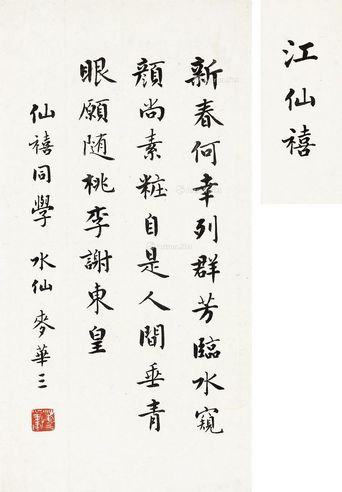 江仙禧
新春何幸列群芳臨水窺
顏尚素粧自是人間垂青
眼願随桃李謝東皇
仙禧同學 水仙 麥華三